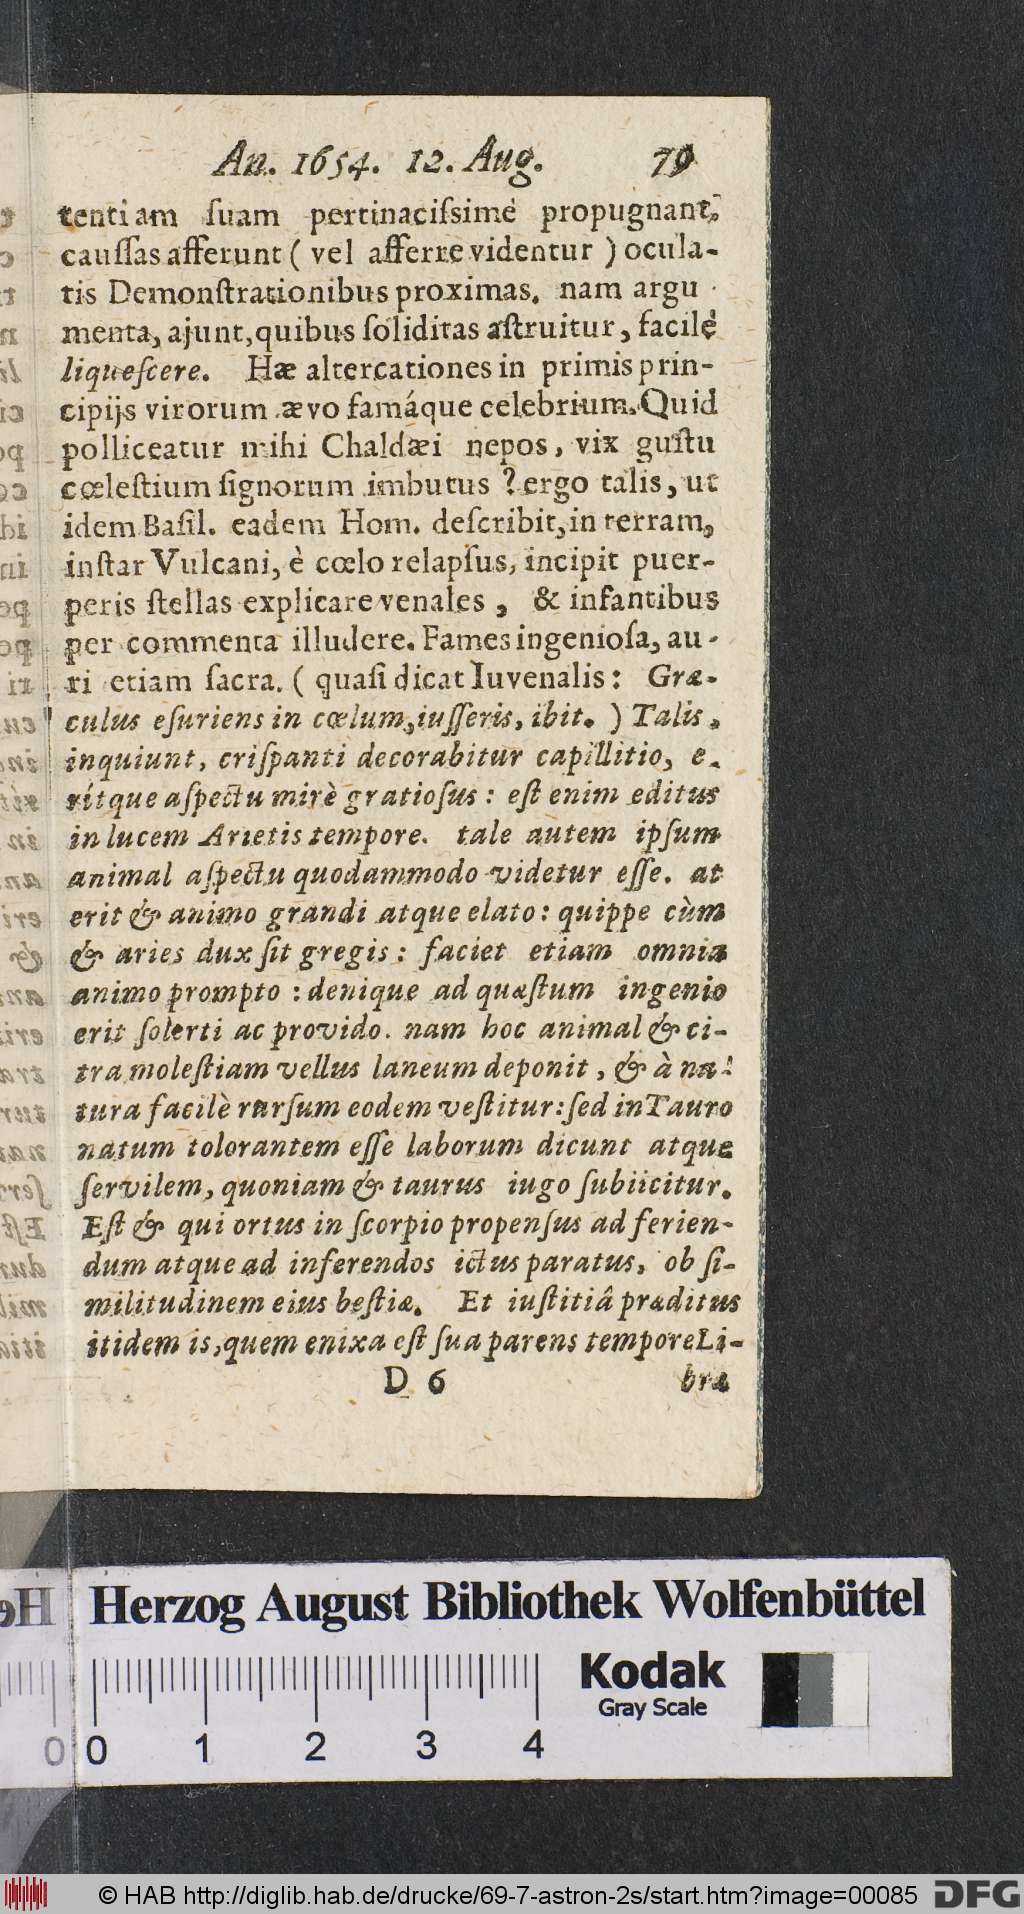 An. 1654. 12. Aug. 79
tentiam ſuam pertinaciſsimè propugnant,
cauſſas afferunt ( vel afferre videntur ) ocula-
tis Demonſtrationibus proximas. nam argu
menta, ajunt, quibus ſoliditas aſtruitur, facilè
liqueſcere. Hæ altercationes in primis prin-
cipijs virorum ævo famáque celebrium. Quid
polliceatur mihi Chaldæi nepos, vix guſtu
cœleſtium ſignorum imbutus ? ergo talis, ut
idem Baſil. eadem Hom. deſcribit, in terram,
inſtar Vulcani, è cœlo relapſus, incipit puer-
peris ſtellas explicare venales , & infantibus
per commenta illudere. Fames ingenioſa, au-
ri etiam ſacra. ( quaſi dicat Iuvenalis: Græ-
culus eſuriens in cœlum, iuſſeris, ibit. ) Talis,
inquiunt, criſpanti decorabitur capillitio, e.
rítque aſpectu mirè gratioſus : eſt enim editus
in lucem Arietis tempore. tale autem ipſum
animal aſpectu quodammodo videtur eſſe. at
erit & animo grandi atque elato: quippe cùm
& aries dux ſit gregis : faciet etiam omnia
animo prompto : denique ad quæſtum ingenio
erit ſolerti ac provido. nam hoc animal & ci-
tra moleſtiam vellus laneum deponit , & à na-
tura facilè rurſum eodem veſtitur: ſed in Tauro
natum tolorantem eſſe laborum dicunt atque
ſervilem, quoniam & taurus iugo ſubiicitur.
Eſt & qui ortus in ſcorpio propenſus ad ferien-
dum atque ad inferendos ictus paratus, ob ſi-
militudinem eius beſtiæ. Et iuſtitiâ præditus
itidem is, quem enixa eſt ſua parens tempore Li-
D 6 bræ
Herzog August Bibliothek Wolfenbüttel
Kodak
Gray Scale
0 0 1 2 3 4
© HAB http://diglib.hab.de/drucke/69-7-astron-2s/start.htm?image=00085 DFG